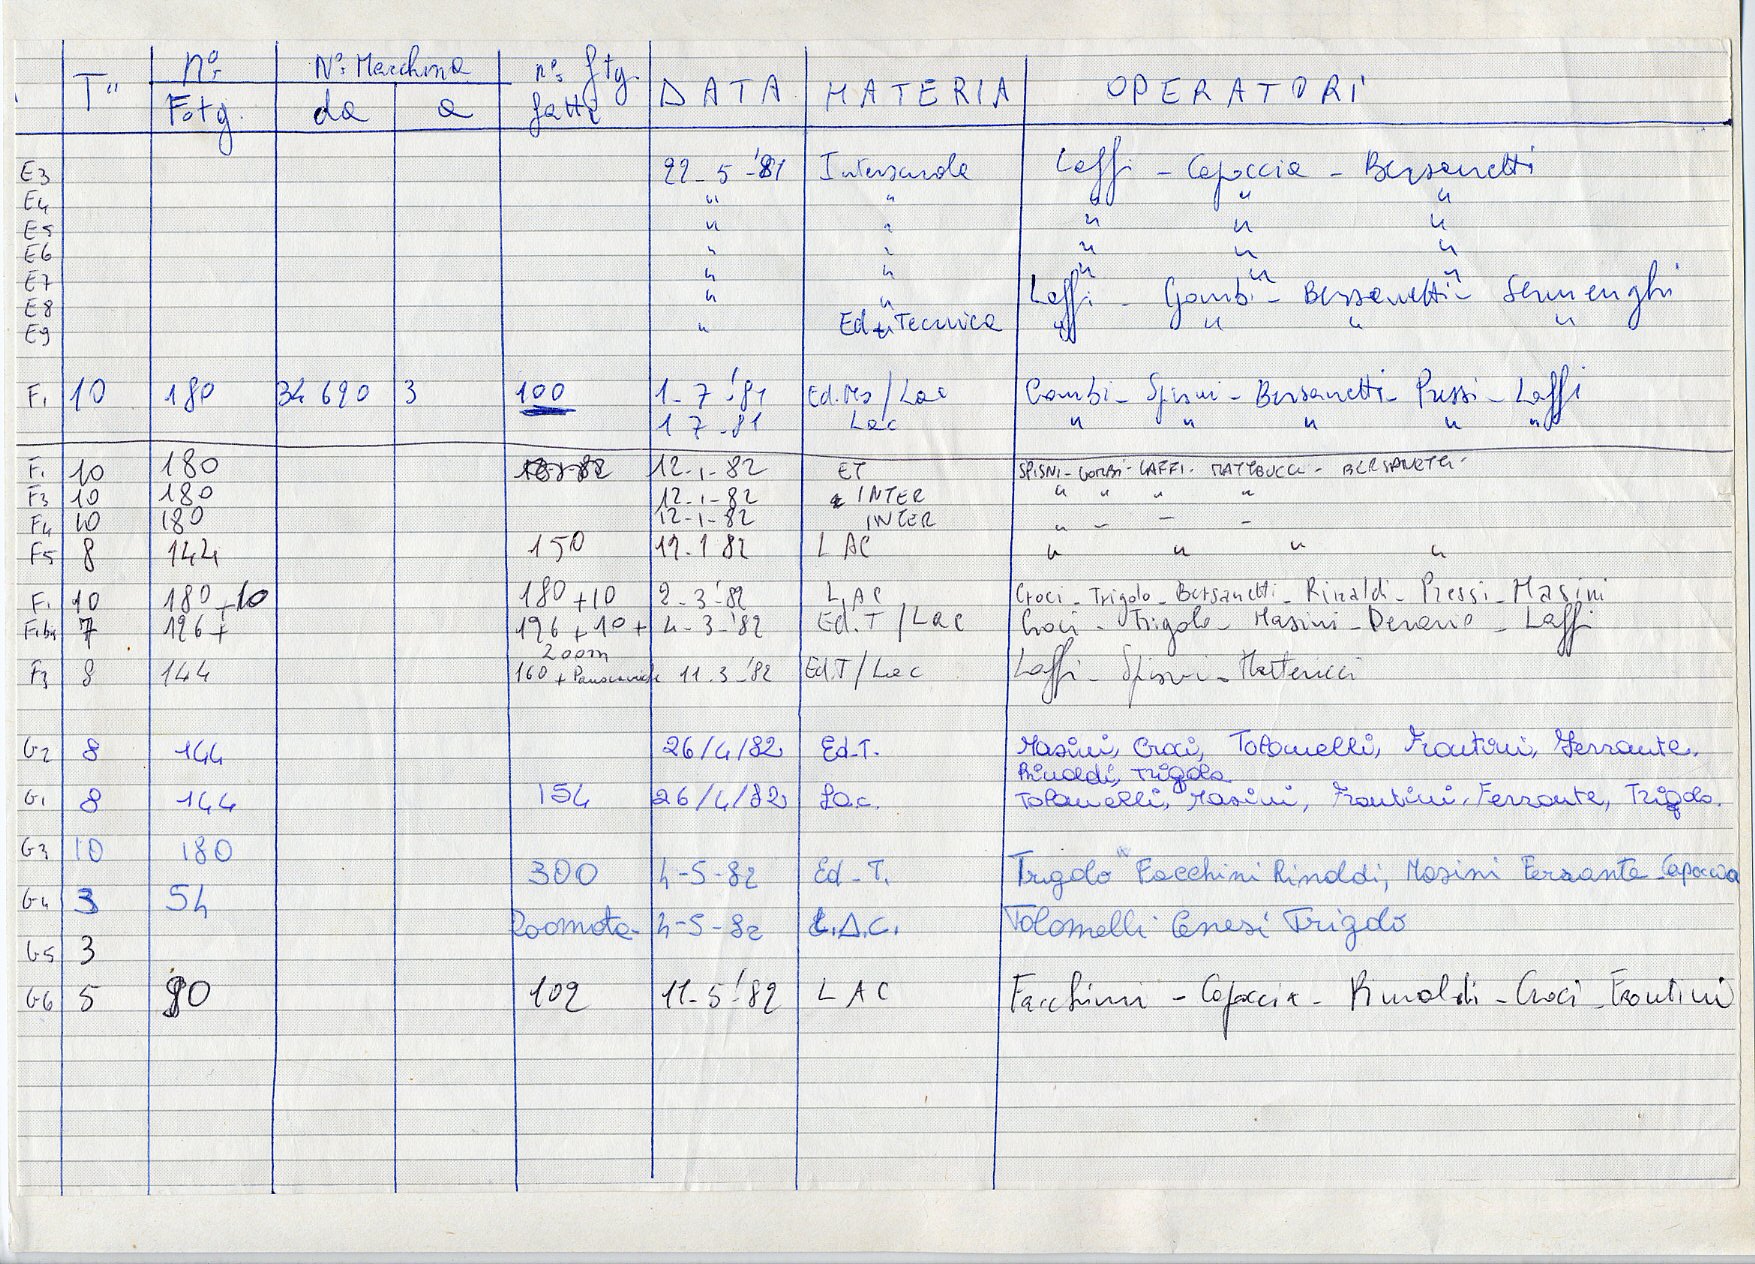 T" nº. Fotg. Nº: Macchina da a nº: ftg. fatte DATA MATERIA OPERATORI
E3 22-5-'81 Interscuola Laffi - Capoccia - Bersanetti
E4 " " " " "
E5 " " " " "
E6 " " " " "
E7 " " " " "
E8 " " Laffi - Gambi - Bersanetti - Sermenghi
E9 " Ed. Tecnica " " " "
F1 10 180 34 690 3 100 1-7-'81 Ed. / Lac Gambi - Spisni - Bersanetti - Pressi - Laffi
1 7-81 Lac " " " " "
F1 10 180 12-1-82 ET SPISNI - GOMBI - LAFFI - MATTEUCCI - BERSANETTI -
F3 10 180 12-1-82 INTER " " " "
F4 10 180 12-1-82 INTER " - - -
F5 8 144 150 12-1 82 LAC " " " "
F1 10 180+10 180+10 2-3-'82 L.AC Croci - Trigolo - Bersanetti - Rinaldi - Pressi - Masini
F1bis 7 126+ 126+10+ 4-3-'82 Ed.T/Lac Croci - Trigolo - Masini - - Laffi
zoom
F3 8 144 160 + 11.3-'82 Ed.T/Lac Laffi - Spisni - Matteucci
G2 8 144 26/4/82 Ed.T. Masini, Croci, Tolomelli, Frontini, Ferrante.
Rinaldi, Trigolo
G1 8 144 154 26/4/82 La.c. Tolomelli, Masini, Frontini, Ferrante, Trigolo.
G3 10 180
300 4-5-82 Ed-T. Trigolo Facchini Rinaldi, Masini Ferrante Capoccia
G4 3 54
Zoomata. 4-5-82 L.A.C. Tolomelli Trigolo
G5 3
G6 5 90 102 11-5-'82 LAC Facchini - Capoccia - Rinaldi - Croci - Frontini